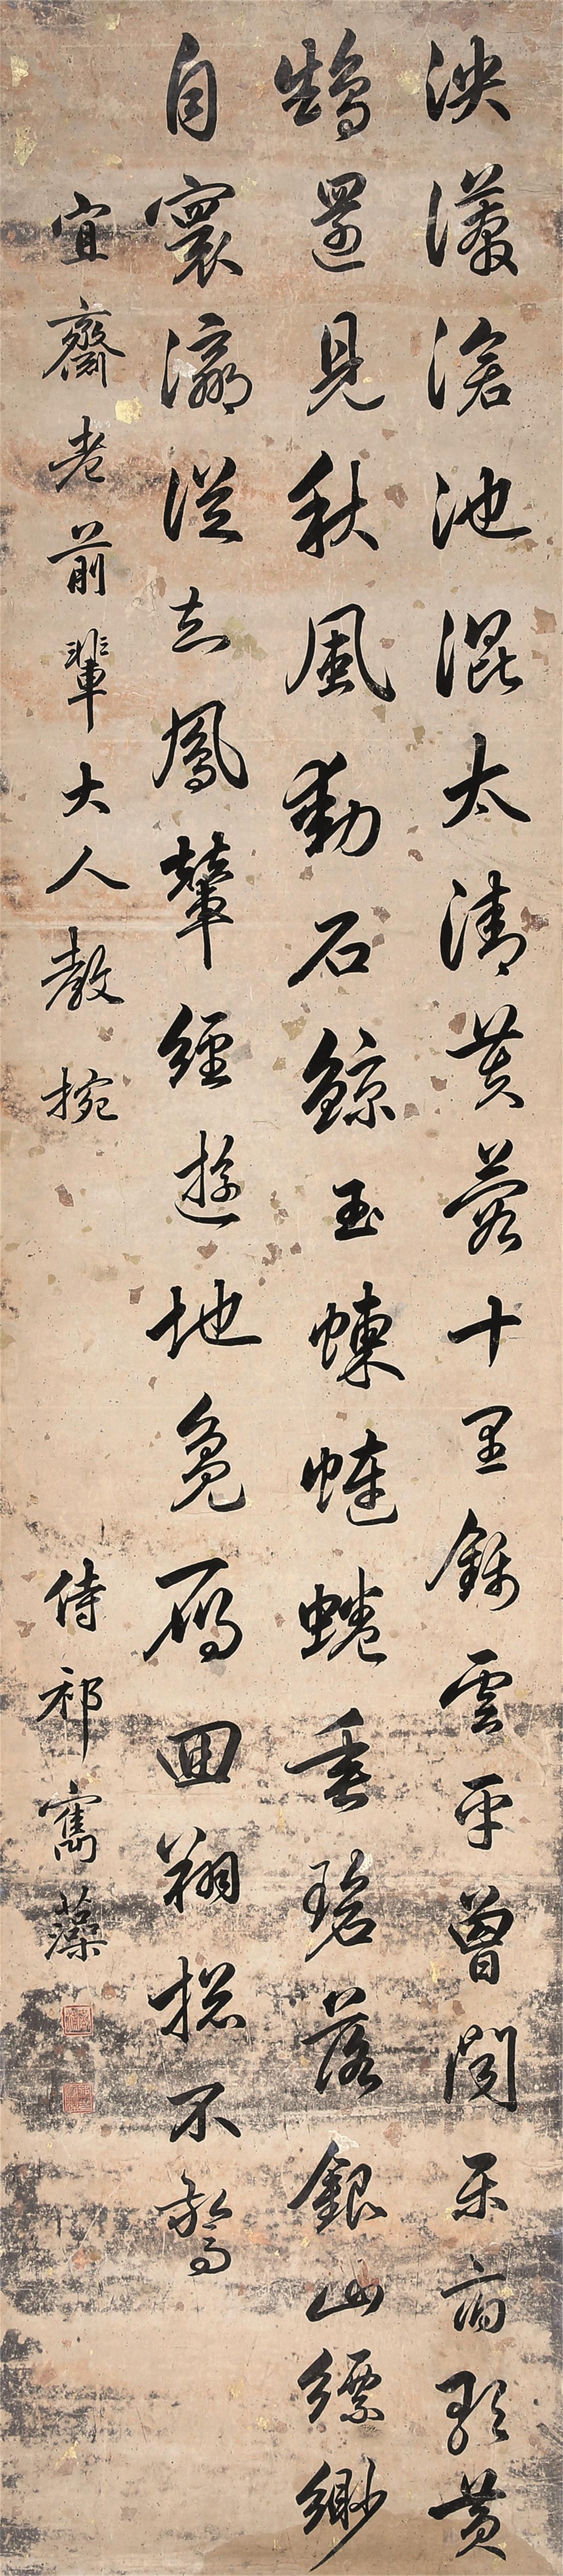 泱漭滄池混太清芰荷十里錦雲平曾聞樂府歌黃
鵠還見秋風動石鯨玉蝀蜷垂碧落銀山縹緲
自寰瀛從知鳳輦經遊地鳧雁回翔總不驚
宜齋老前輩大人教捥
侍祁寯藻